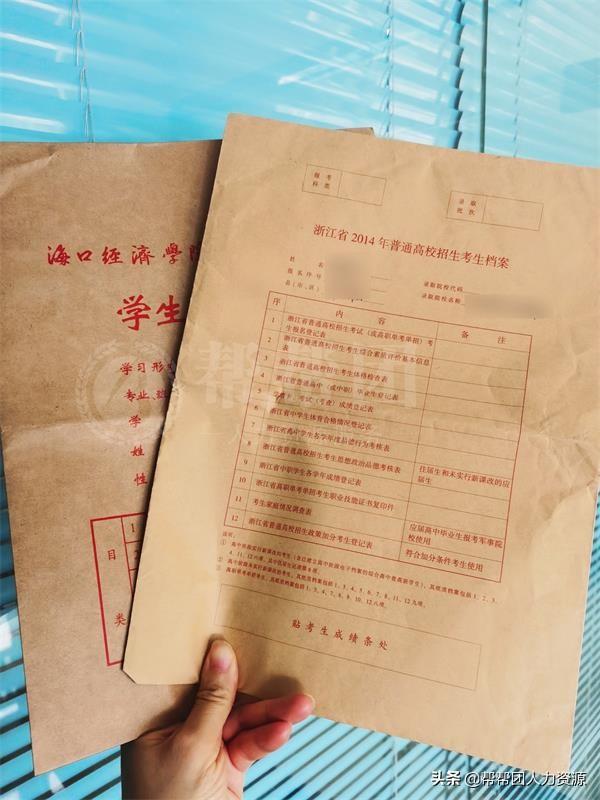 报考
科类
录取
批次
浙江省2014年普通高校招生考生档案
姓名
报名序号
县(市、区)
录取院校代码
录取院校名称
序 内容 备注
1 浙江省普通高校招生考试(或高职单考单招)考生报名登记表
2 浙江省普通高校招生考生综合素质评价基本信息表
3 浙江省普通高校招生考生体格检查表
4 浙江省普通高中(或中职)毕业生登记表
5 学考)考试(考查)成绩登记表
6 浙江省中学生体育合格情况登记表
7 浙江省高中学生各学年度品德行为考核表
8 浙江省普通高校招生考生思想政治品德考核表 往届生和未实行新课改的应届生
9 浙江省中职学生各学年成绩登记表
10 浙江省高职单考单招考生职业技能证书复印件
11 考生家庭情况调查表 应届高中毕业生报考军事院校使用
12 浙江省普通高校招生政策加分考生登记表 符合加分条件考生使用
说明:
贴考生成绩条处
海口经济學
学生
学习形
专业、班
学
姓
性
目
类
1
2
帮帮团
头条 @帮帮团人力资源